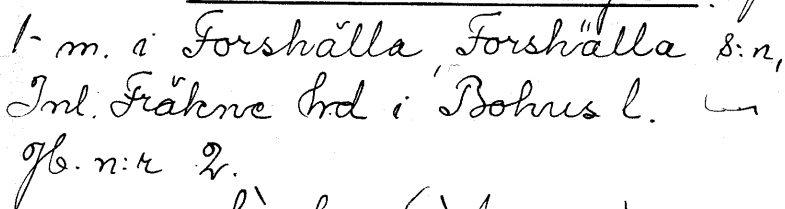 1- m. i Forshälla, Forshälla s:n,
Inl. Fräkne hrd i Bohus l.
gb. n:r 2.